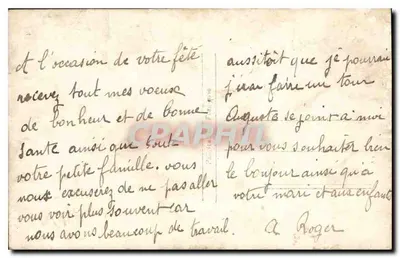 A l'occasion de votre fête
recevez tout mes voeux
de bonheur et de bonne
sante ainsi que tout
votre petite famille. vous
nous excuserez de ne pas aller
vous voir plus souvent car
nous avons beaucoup de travail.
aussitôt que je pourrai
j'irai faire un tour
Auguste se joint a moi
pour vous souhaiter bien
le bonjour ainsi qu'a
votre mari et aux enfants
A Roger
CPARAMA